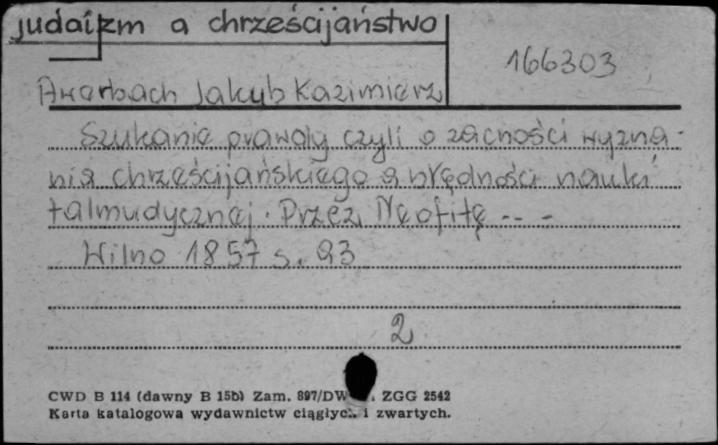 judaizm a chrześcijaństwo
166303
Auerbach Jakub Kazimierz
Szukanie prawdy czyli o zacności wyzna-
nia chrześcijańskiego a błędności nauki
talmudycznej. Przez Neofitę -- -
Wilno 1857 s. 93
2
CWD B 114 (dawny B 15b) Zam. 897/DW ZGG 2542
Karta katalogowa wydawnictw ciągłych i zwartych.